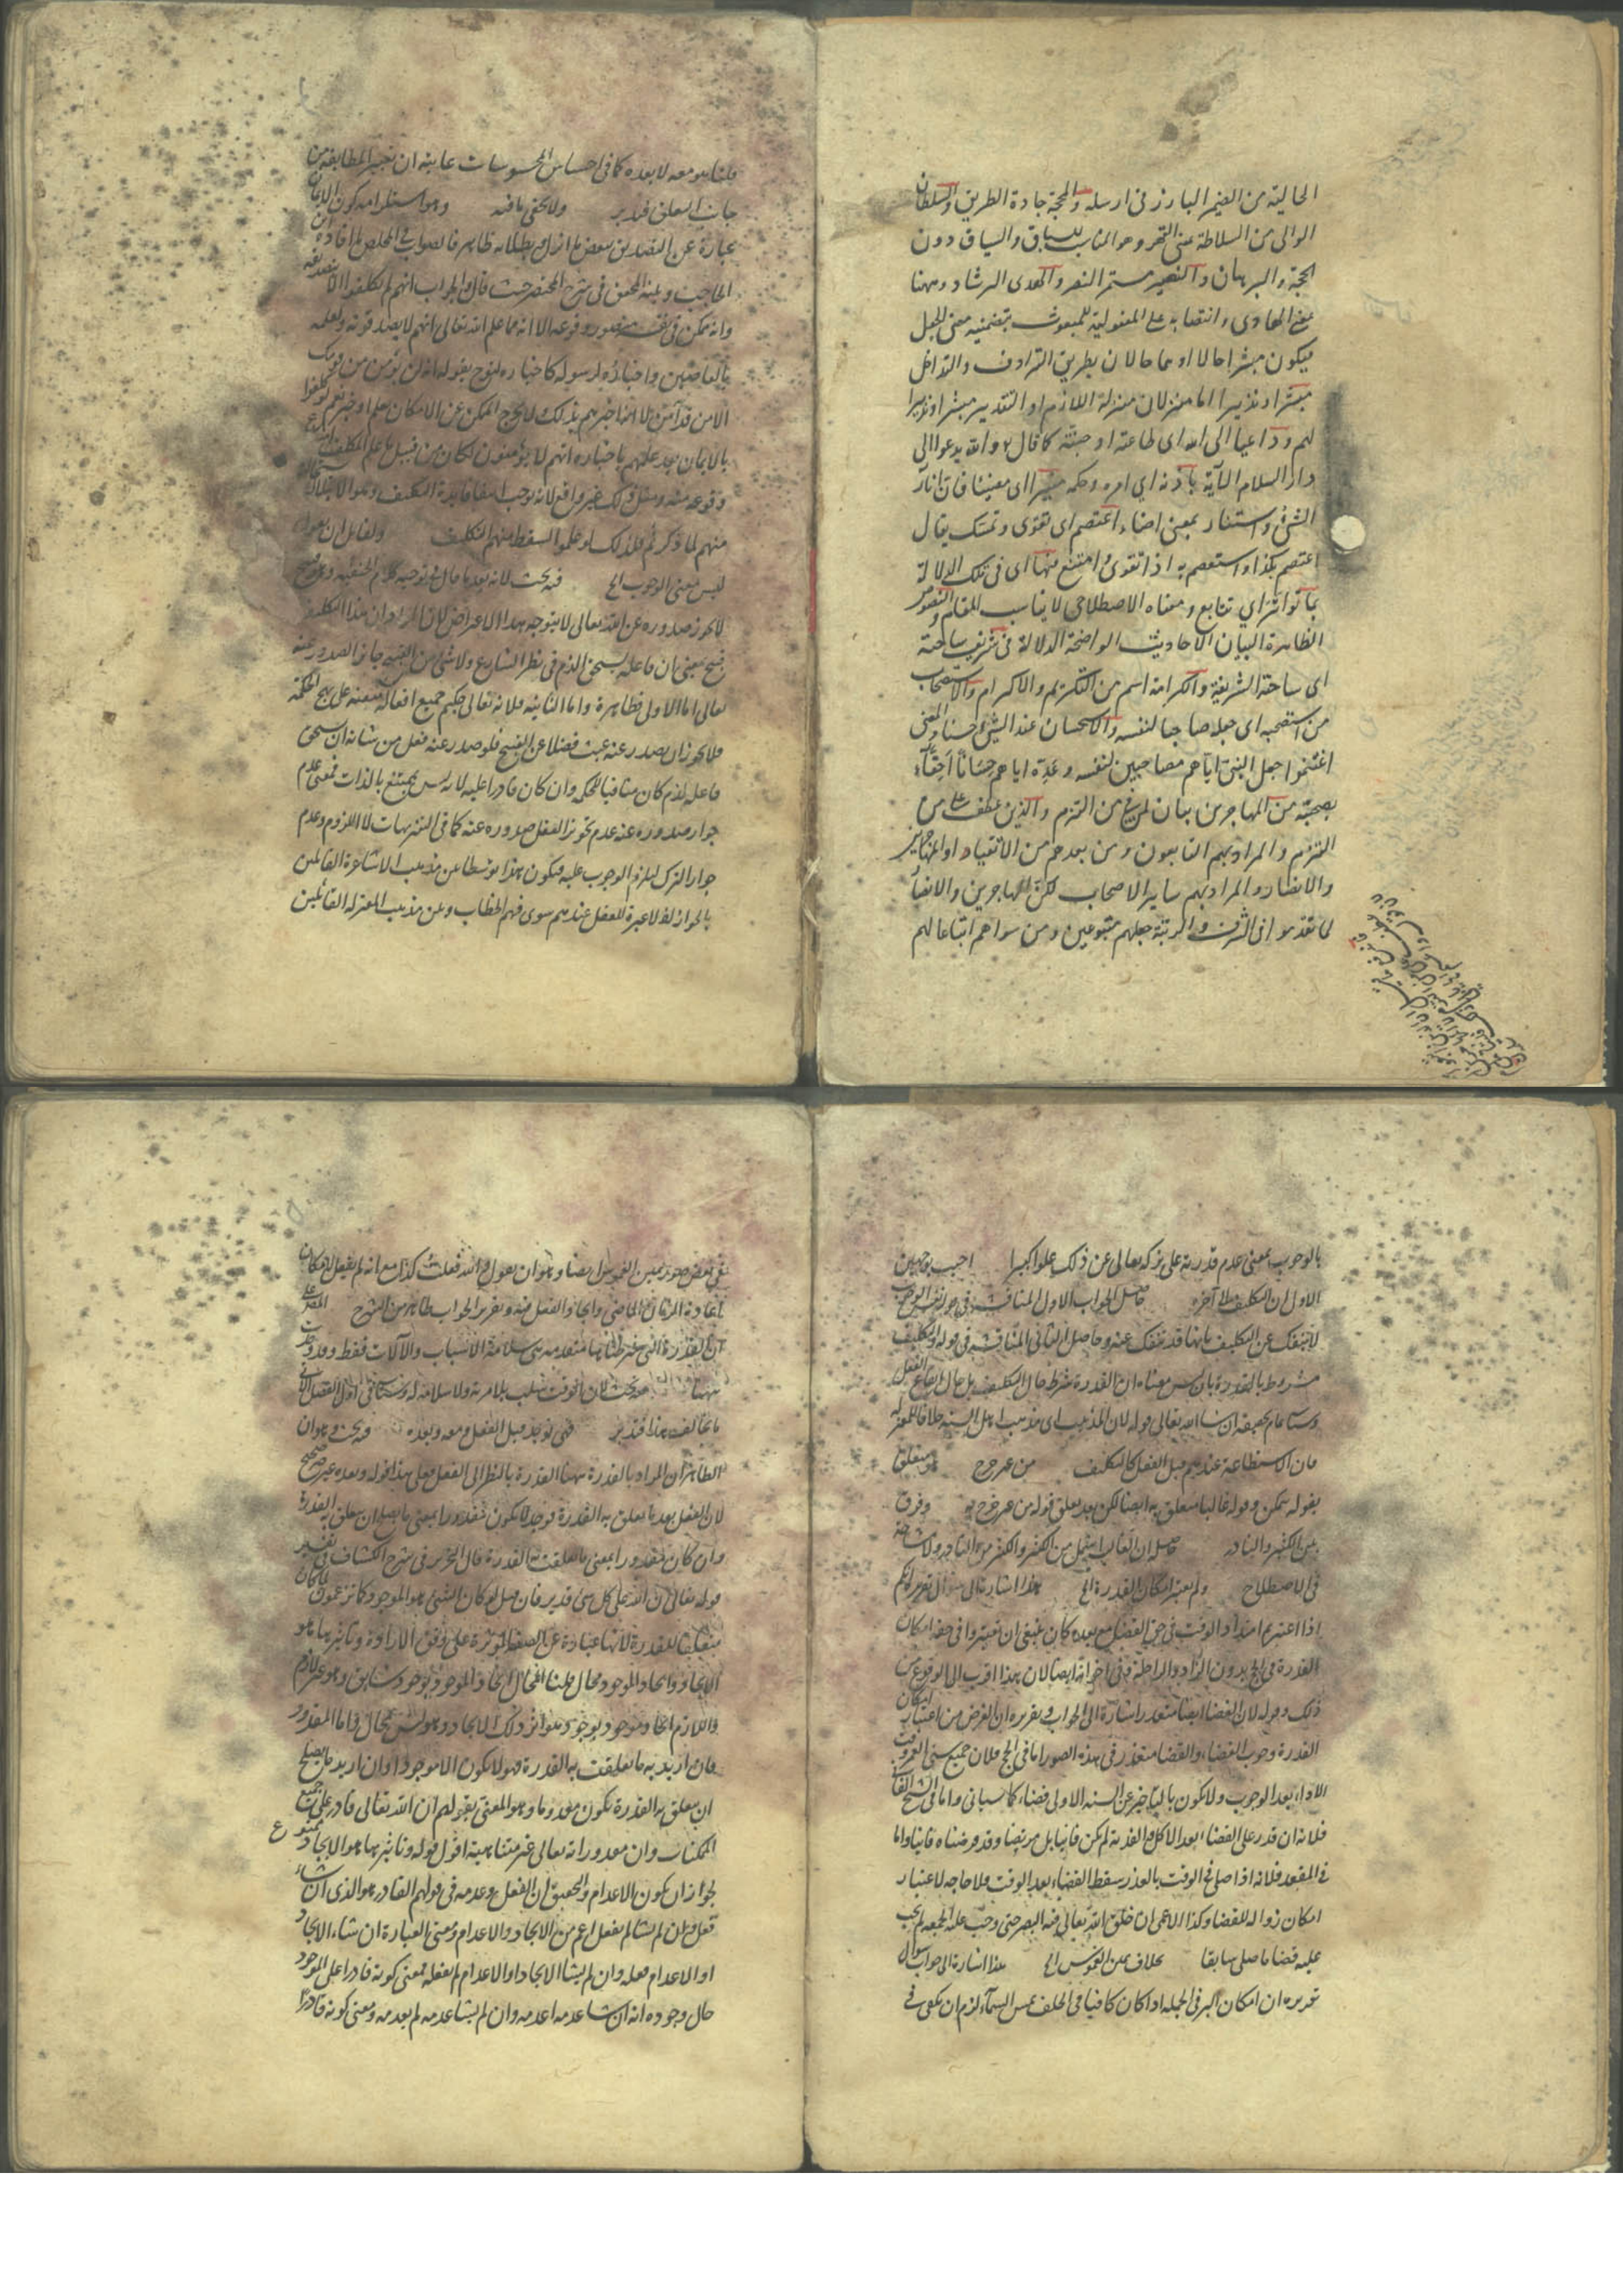 الحالية من الضمير البارز في ارسله والمحجة جادة الطريق والسلطان
الوالي من السلاطة بمعنى القهر وهو المناسب للسباق والسياق دون
الحجة والبرهان والنصير مستمر النصر والهدى الرشاد وههنا
بمعنى الهادي وانتصابه على المفعولية للمبعوث بتضمينه معنى الجعل
فيكون مبشرا حالا او هما حالان بطريق الترادف والتداخل
مبشرا ونذيرا اما منزلان منزلة اللازم او التقدير مبشرا ونذيرا
لهم وداعيا الى الله اى طاعته او جنته كما قال والله يدعوا الى
دار السلام الآية باذنه اي امره وحكمه منيرا اى مضيئا فان انار
الشئ واستنار بمعنى اضاء اعتصم اى تقوى وتمسك يقال
اعتصم بكذا واستعصم به اذا تقوى وامتنع منها اى فى تلك الدلالة
بما تواتر اي تتابع ومعناه الاصطلاحى لا يناسب المقام والنصوص
الظاهرة البيان الاحاديث الواضحة الدلالة فى شريف ساحته
اى ساحته الشريفة والكرامة اسم من التكريم والاكرام والاستصحاب
من استصحبه اى جعله صاحبا لنفسه والاستحسان عد الشئ حسنا والمعنى
اغتنموا جعل النبى اياهم مصاحبين لنفسه وعده اياهم حسانا احقاء
بصحبته من المهاجرين بيان لمن فى من التزم والذين عطف على من
التزم والمراد بهم التابعون ومن بعدهم من الاتقياد او المهاجرين
والانصار والمراد بهم ساير الاصحاب لكن المهاجرين والانصار
لما تقدموا فى الشرف والرتبة جعلهم متبوعين ومن سواهم اتباعا لهم
قلنا هو معه لا بعده كما فى احساس المحسوسات غايته ان تعتبر المطابقة من
جانب العلم فتدبر ولا يخفى ما فيه وهو استلزامه كون الايمان
عبارة عن التصديق ببعض ما انزل وبطلانه ظاهر فالصواب فى المخلص ما افاده ابن
الحاجب وبينه المحقق فى شرح المختصر حيث قال والجواب انهم لم يكلفوا الا بتصديقه
وانه ممكن فى نفسه متصور وقوعه الا انه مما علم الله تعالى انهم لا يصدقونه
واخباره لرسوله كاخباره لنوح بقوله انه لن يؤمن من قومك
الا من قد آمن لا انه اخبرهم بذلك ولا يخرج الممكن عن الامكان بعلم او خبر نعم لو كلفوا
بالايمان بعد علمهم باخباره انهم لا يؤمنون لكان من قبيل ما علم المكلف امتناع
وقوعه منه ومثل ذلك غير واقع لانه لوجب انتفاء فايدة التكليف وهو الابتلاء
منهم لما ذكرتم فلذلك لو علموا لسقط منهم التكليف ولقائل ان يقول
ليس معنى الوجوب الخ فيه بحث لانه بعد ما قال فى توجيه كلام الحنفية
لا يجوز صدوره عن الله تعالى لا يتوجه هذا الاعتراض لان المراد ان هذا التكليف
قبيح بمعنى ان فاعله يستحق الذم فى نظر الشارع ولا شئ من القبيح جائز الصدور عنه
تعالى اما الاولى فظاهرة واما الثانية فلانه تعالى حكيم جميع افعاله متقنة على نهج الحكمة
فلا يجوز ان يصدر عنه عبث فضلا عن القبيح فلو صدر عنه فعل من شانه ان يستحق
فاعله لذم كان منافيا للحكمة وان كان قادرا عليه لانه ليس بممتنع بالذات فمعنى عدم
جواز صدوره عنه عدم تجويز العقل صدوره عنه كما فى التنزيهات لا اللزوم وعدم
جواز الترك ليلزم الوجوب عليه فيكون هذا توسطا بين مذهب الاشاعرة القائلين
بالجواز اذ لا عبرة للعقل عندهم سوى فهم الخطاب وبين مذهب المعتزلة القائلين
بالوجوب بمعنى عدم قدرته على تركه تعالى عن ذلك علوا كبيرا اجيب بوجهين
الاول ان التكليف الى آخره حاصل الجواب الاول المناقشة فى جواز نفس الوجوب
لا ينفك عن التكليف بانها قد تنفك عنه وحاصل الثانى المناقشة فى قوله والتكليف
مشروط بالقدرة بان ليس معناه ان القدرة شرط حال التكليف بل حال ايقاع الفعل
وسيأتى تمام تحقيقه ان شاء الله تعالى قوله لان المذهب اى مذهب اهل السنة خلافا للمعتزلة
فان الاستطاعة عندهم قبل الفعل كالتكليف من غير حرج متعلق
بقوله يتمكن وقوله غالبا متعلق به ايضا لكن بعد تعلق قوله من غير حرج به وفرق
بين الكثير والنادر حاصله ان الغالب اشمل من الكثير والكثير من النادر ولا مشاحة
فى الاصطلاح ولم يعتبر امكان القدرة الخ هذا اشارة الى سؤال تقريره انكم
اذا اعتبرتم امتداد الوقت فى حق الفعل مع بعده كان ينبغى ان تعتبروا فى حقه امكان
القدرة فى الحج بدون الزاد والراحلة وفى اخواته ايضا لان هذا اقرب الى الوقوع من
ذلك وقوله لان القضاء ايضا متعذر اشارة الى الجواب وتقريره ان الغرض من اعتبار امكان
القدرة وجوب القضاء والقضاء متعذر فى هذه الصور اما فى الحج فلان جميع سنى العمر وقت
الاداء بعد الوجوب ولا يكون بالتاخير عن السنة الاولى قضاء كما سياتى واما فى الشيخ الفانى
فلانه ان قدر على القضاء بعد الاكل والفدية لم يكن فانيا بل مريضا وقد فرضناه فانيا واما
فى المقعد فلانه اذا صلى فى الوقت بالعذر سقط القضاء بعد الوقت فلا حاجة لاعتبار
امكان زواله للقضاء وكذا الاعمى ان خلق الله تعالى فيه البصر حتى وجب عليه الجمعة لم يجب
عليه قضاء ما صلى سابقا بخلاف يمين الغموس الخ هذا اشارة الى جواب سؤال
تحريره ان امكان البر فى الجملة اذا كان كافيا فى الحلف بمس السماء لزم ان يكفى فى
فى بعض صور يمين الغموس ايضا وهو ان يقول والله فعلت كذا مع انه لم يفعل لامكان
اعادة الزمان الماضى وايجاد الفعل فيه وتقرير الجواب ظاهر من الشرح
ان القدرة التى شرطناها متقدمة هى سلامة الاسباب والآلات فقط
بحث لان الوقت سبب
ما يخالف هذا فتدبر فهى توجد قبل الفعل ومعه وبعده فيه بحث وهو ان
الظاهر ان المراد بالقدرة ههنا القدرة بالنظر الى الفعل فعلى هذا قوله وبعده غير صحيح
لان الفعل بعد ما تعلق به القدرة فوجد لا يكون مقدورا بمعنى ما يصلح ان يتعلق به القدرة
وان كان مقدورا بمعنى ما تعلقت به القدرة قال النحرير فى شرح الكشاف فى تفسير
قوله تعالى ان الله على كل شئ قدير فان قيل لو كان الشئ هو الموجود كما تزعمون
متعلقا للقدرة لانها عبارة عن الصفة المؤثرة على وفق الارادة وتأثيرها هو
الايجاد وايجاد الموجود محال قلنا المحال ايجاد الموجود بوجود سابق وهو غير لازم
واللازم ايجاد موجود بوجود هو اثر ذلك الايجاد وهو ليس بمحال واما المقدور
فان اريد به ما تعلقت به القدرة فهو لا يكون الا موجودا وان اريد ما يصلح
ان يتعلق به القدرة يكون معدوما وهو المعنى بقولهم ان الله تعالى قادر على جميع
الممكنات وان مقدوراته تعالى غير متناهية اقول قوله وتأثيرها هو الايجاد ممنوع
لجواز ان يكون الاعدام والتحقيق ان الفعل وعدمه فى قولهم القادر هو الذى ان شاء
فعل وان لم يشا لم يفعل اعم من الايجاد والاعدام ومعنى العبارة ان شاء الايجاد
او الاعدام فعله وان لم يشا الايجاد او الاعدام لم يفعله فمعنى كونه قادرا على الموجود
حال وجوده انه ان شا عدمه اعدمه وان لم يشا عدمه لم يعدمه ومعنى كونه قادرا